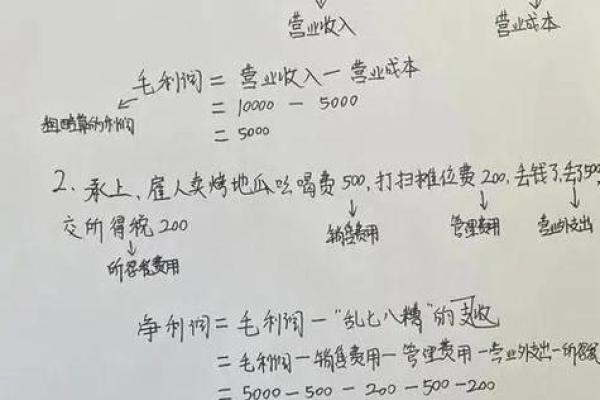 营业收入 营业成本
毛利润 = 营业收入 — 营业成本
= 10000 — 5000
粗略算的利润
= 5000
2、承上、雇人卖烤地瓜吆喝费500,打扫摊位费200,丢钱了丢了500,
交所得税200
销售费用 管理费用 营业外支出
所得税费用
净利润 = 毛利润 — “乱七八糟”的支收
= 毛利润 — 销售费用 — 管理费用 — 营业外支出 — 所得税
= 5000 — 500 — 200 — 500 — 200